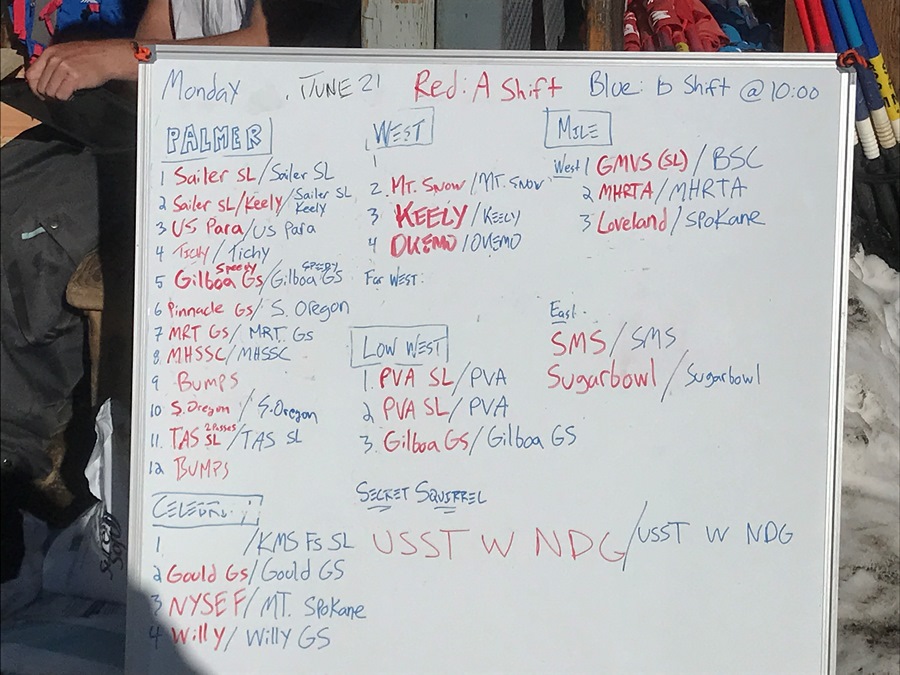 Monday June 21 Red: A Shift Blue: b Shift @ 10:00
PALMER
1 Sailer SL/Sailer SL
2 Sailer SL/Keely/Sailer SL Keely
3 US Para/US Para
4 Tichy/Tichy
5 Gilboa Speedy GS/Gilboa Speedy GS
6 Pinnacle GS/S. Oregon
7 MRT GS/MRT GS
8. MHSSC/MHSSC
9 BUMPS
10 S.Oregon/S.Oregon
11. TAS 2 Passes SL/TAS SL
12 BUMPS
CELEBRI
1 /KMS FS SL
2 Gould GS/Gould GS
3 NYSEF/MT. Spokane
4 Willy/Willy GS
WEST
1
2. MT. SNOW/MT. SNOW
3 KEELY/KEELY
4 OKEMO/OKEMO
Far WEST:
LOW WEST
1. PVA SL/PVA
2 PVA SL/PVA
3. Gilboa GS/Gilboa GS
SECRET SQUIRREL
USST W NDG/USST W NDG
MILE
West 1 GMVS (SL)/BSC
2 MHRTA/MHRTA
3 Loveland/Spokane
East.
SMS/SMS
Sugarbowl/Sugarbowl